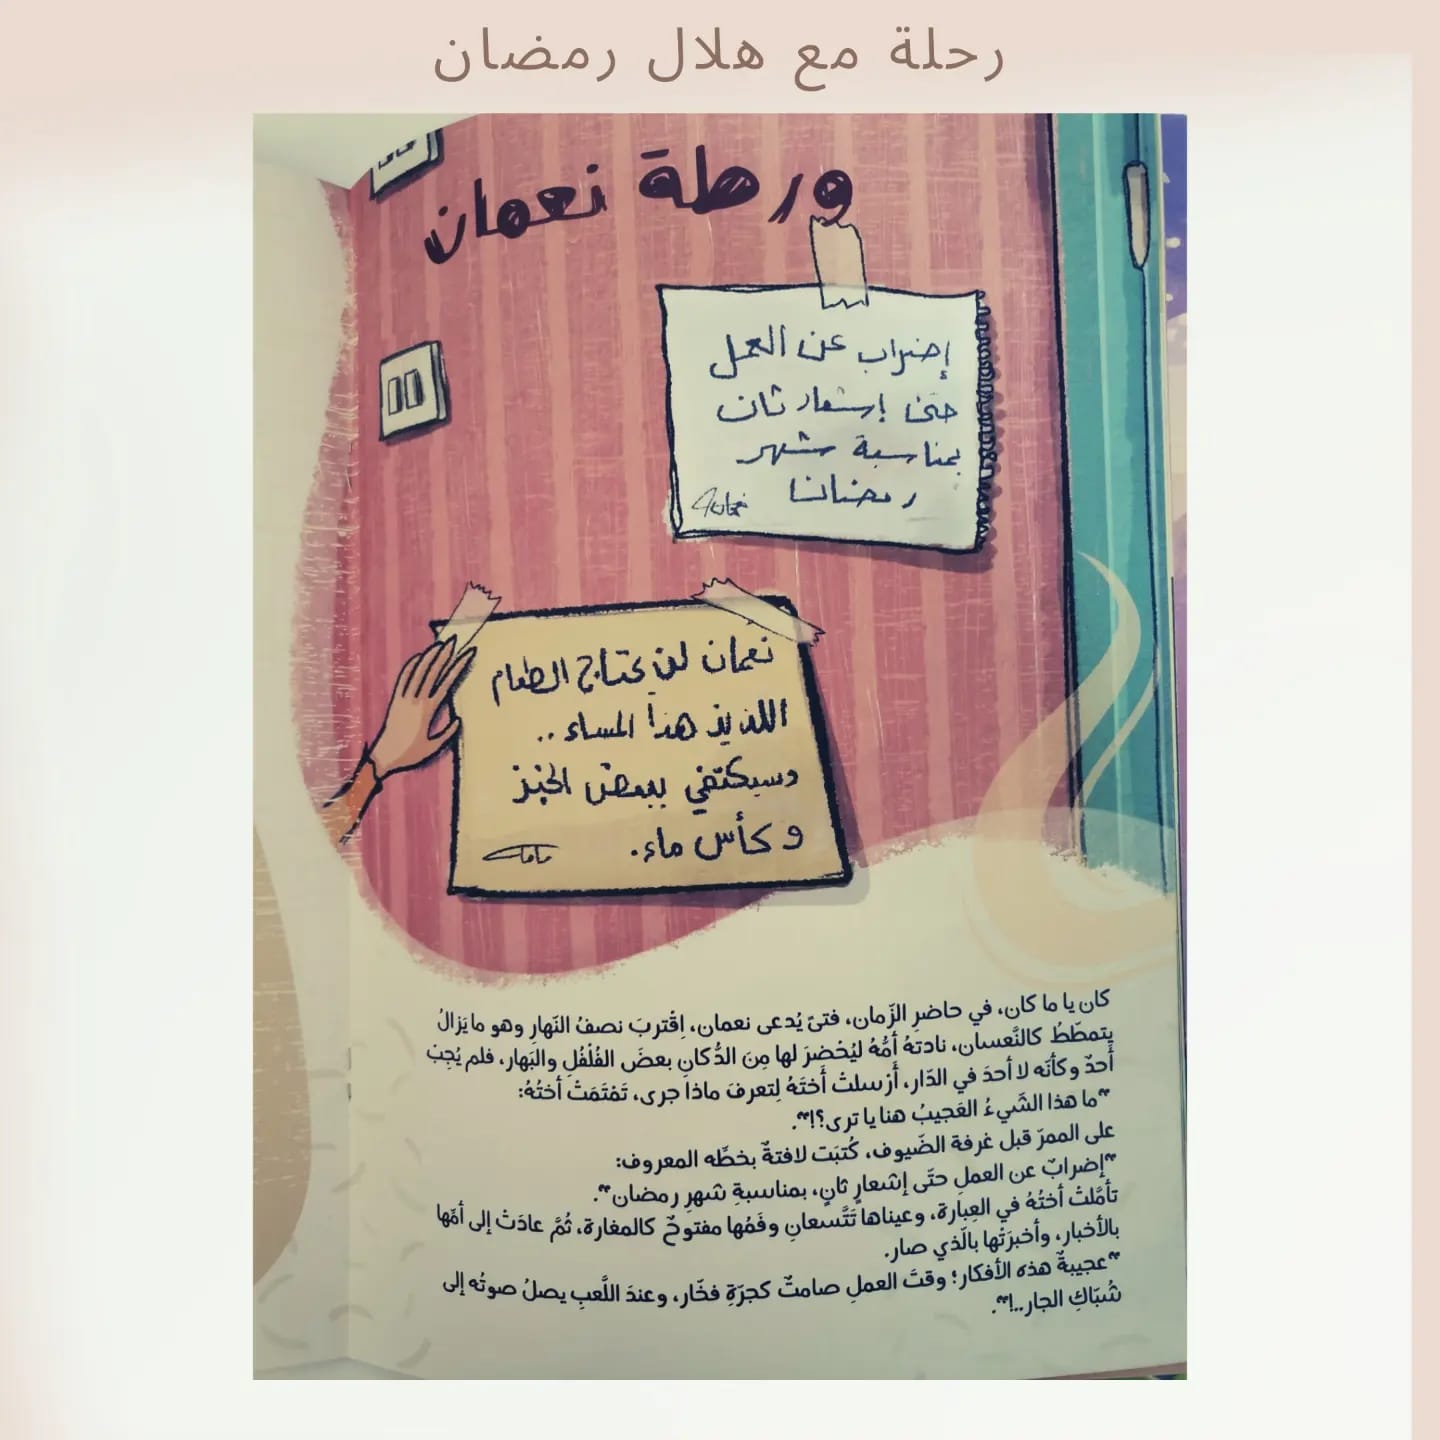 رحلة مع هلال رمضان
ورطة نعمان
إضراب عن العمل
حتى إشعار ثان
بمناسبة شهر
رمضان
نعمان
نعمان لن يحتاج الطعام
اللذيذ هذا المساء..
وسيكتفي ببعض الخبز
وكأس ماء.
ماما
كان يا ما كان، في حاضرِ الزّمان، فتىً يُدعى نعمان، اِقْتربَ نصفُ النّهارِ وهو ما يَزالُ
يتمطّطُ كالنَّعسان، نادتهُ أمُّهُ ليُحْضرَ لها مِنَ الدُّكانِ بعضَ الفُلْفُلِ والبَهار، فلم يُجِبْ
أحدٌ وكأنّه لا أحدَ في الدّار، أرْسلتْ أختَهُ لِتعرفَ ماذا جرى، تَمْتَمَتْ أختُهُ:
"ما هذا الشَّيءُ العَجيبُ هنا يا ترى؟!".
على الممرّ قبل غرفة الضّيوف، كُتبَت لافتةٌ بخطِّه المعروف:
"إضرابٌ عن العملِ حتّى إشعارٍ ثانٍ، بمناسبةِ شهرِ رمضان".
تأمَّلتْ أختُهُ في العِبارة، وعيناها تَتَّسعانِ وفَمُها مفتوحٌ كالمغارة، ثُمَّ عادَتْ إلى أمِّها
بالأخبار، وأخبرَتْها بالّذي صار.
"عجيبةٌ هذه الأفكار؛ وقتَ العملِ صامتٌ كجرّةِ فخّار، وعندَ اللَّعبِ يصلُ صوتُه إلى
شُبّاكِ الجار..!".